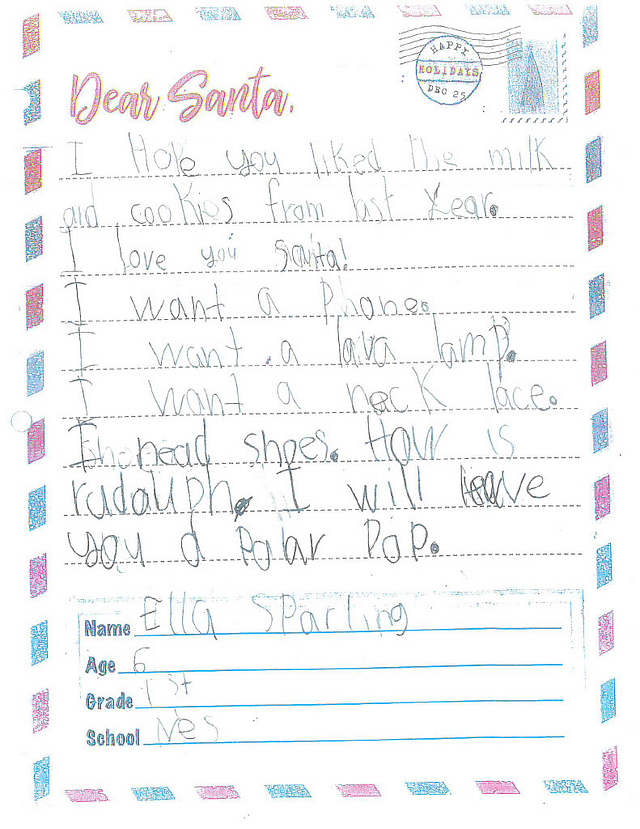 HAPPY
HOLIDAYS
DEC 25
Dear Santa,
I Hope you liked the milk
and cookies from last year.
I love you Santa!
I want a Phone.
I want a lava lamp.
I want a neck lace.
I nead shoes. How is
rudolph. I will leave
you a Polar Pop.
Name Ella Sparling
Age 6
Grade 1st
School Nes